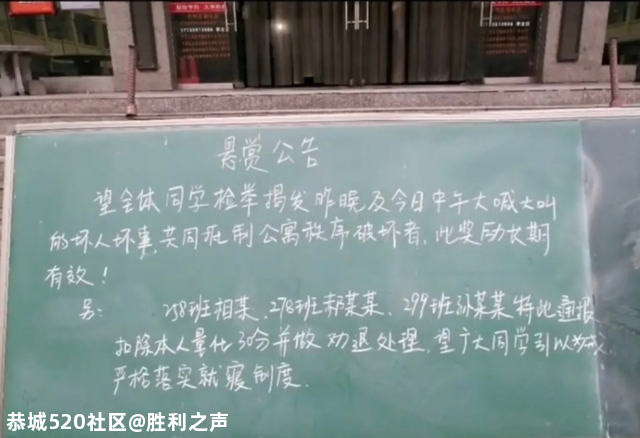 悬赏公告
望全体同学检举揭发昨晚及今日中午大喊大叫
的坏人坏事,共同抵制公寓秩序破坏者,此奖励长期
有效!
另: 258班相某、278班郝某某、299班孙某某特此通报
扣除本人量化30分并做劝退处理,望广大同学引以为戒,
严格落实就寝制度.
恭城520社区@胜利之声